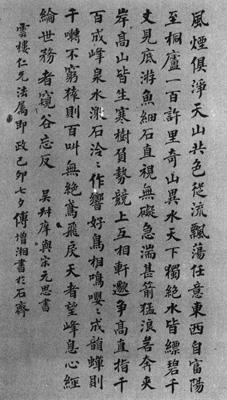 風煙俱淨天山共色從流飄蕩任意東西自富陽
至桐廬一百許里奇山異水天下獨絕水皆縹碧千
丈見底游魚細石直視無礙急湍甚箭猛浪若奔夾
岸高山皆生寒樹負勢競上互相軒邈爭高直指千
百成峰泉水激石泠泠作響好鳥相鳴嚶嚶成韻蟬則
千囀不窮猿則百叫無絕鳶飛戾天者望峰息心經
綸世務者窺谷忘反 吳叔庠與宋元思書
雲樓仁兄法屬即政己卯七夕傅增湘書於石齋